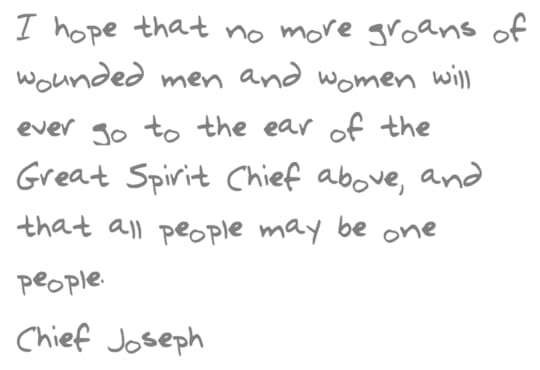 I hope that no more groans of
wounded men and women will
ever go to the ear of the
Great Spirit Chief above, and
that all people may be one
people.
Chief Joseph